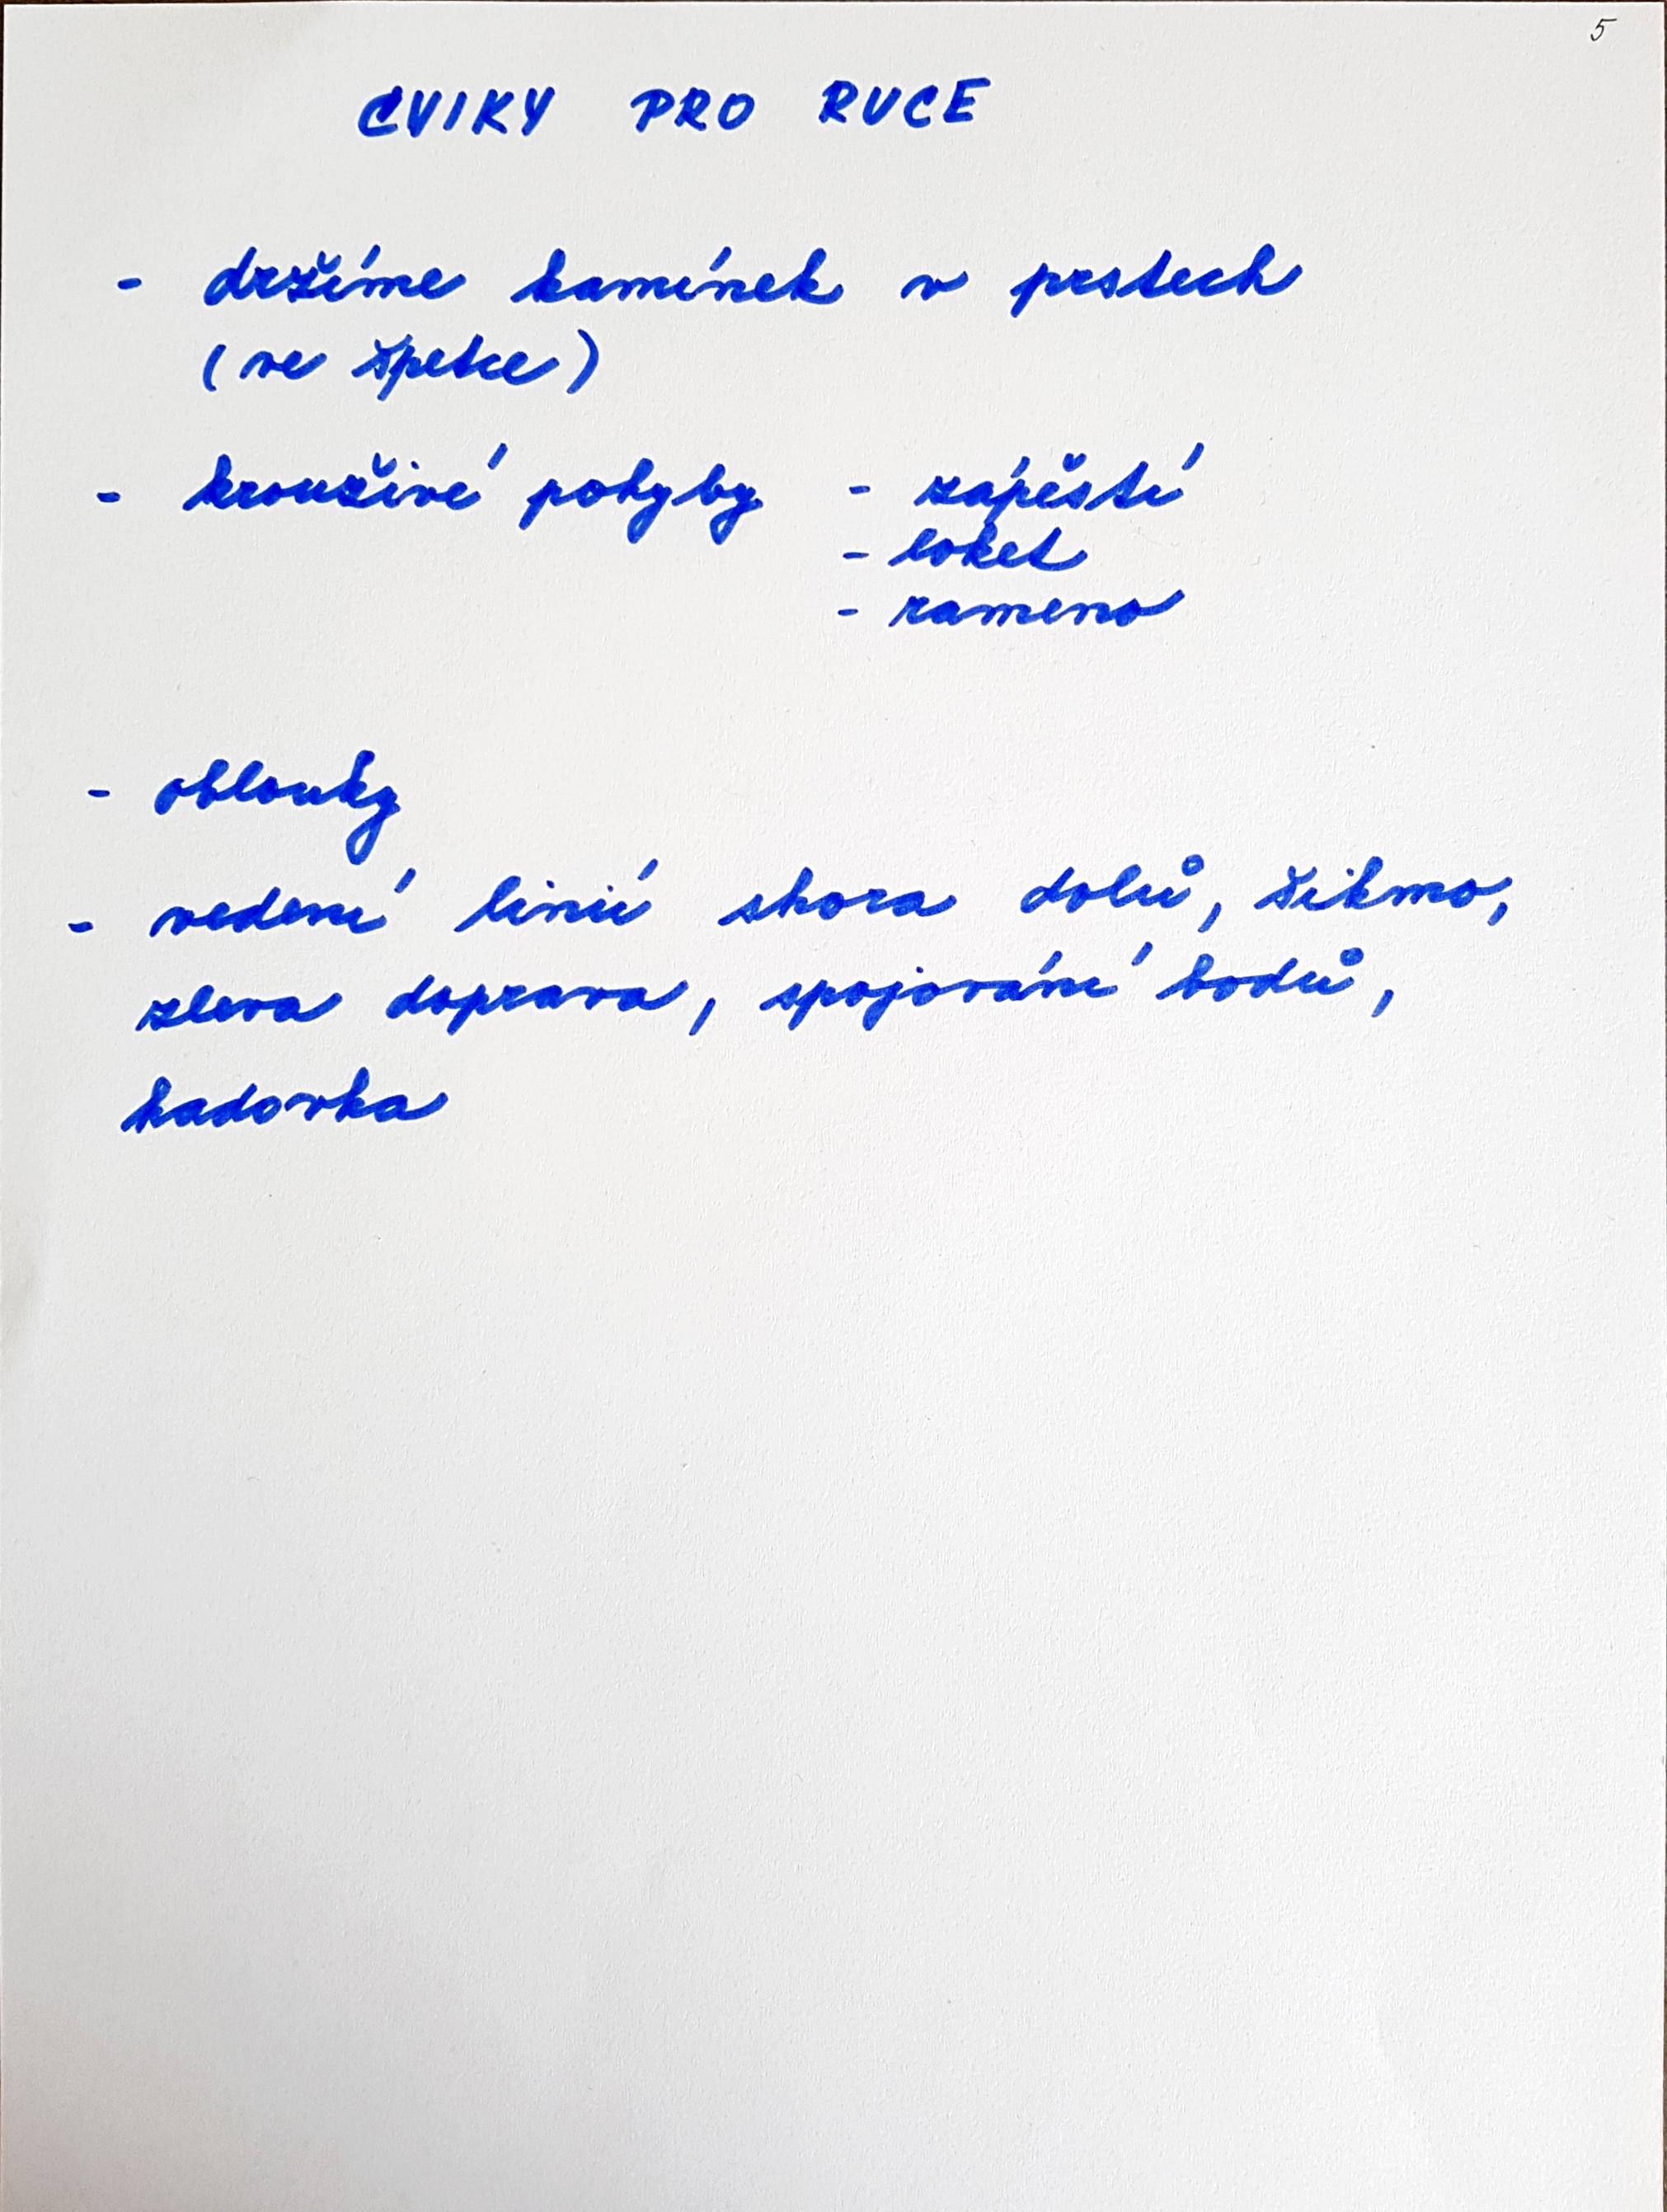 5
CVIKY PRO RUCE
- držíme kamínek v prstech
(ve špetce)
- krouživé pohyby - zápěstí
- loket
- rameno
- oblouky
- vedení linií shora dolů, šikmo,
zleva doprava, spojování bodů,
hadovka